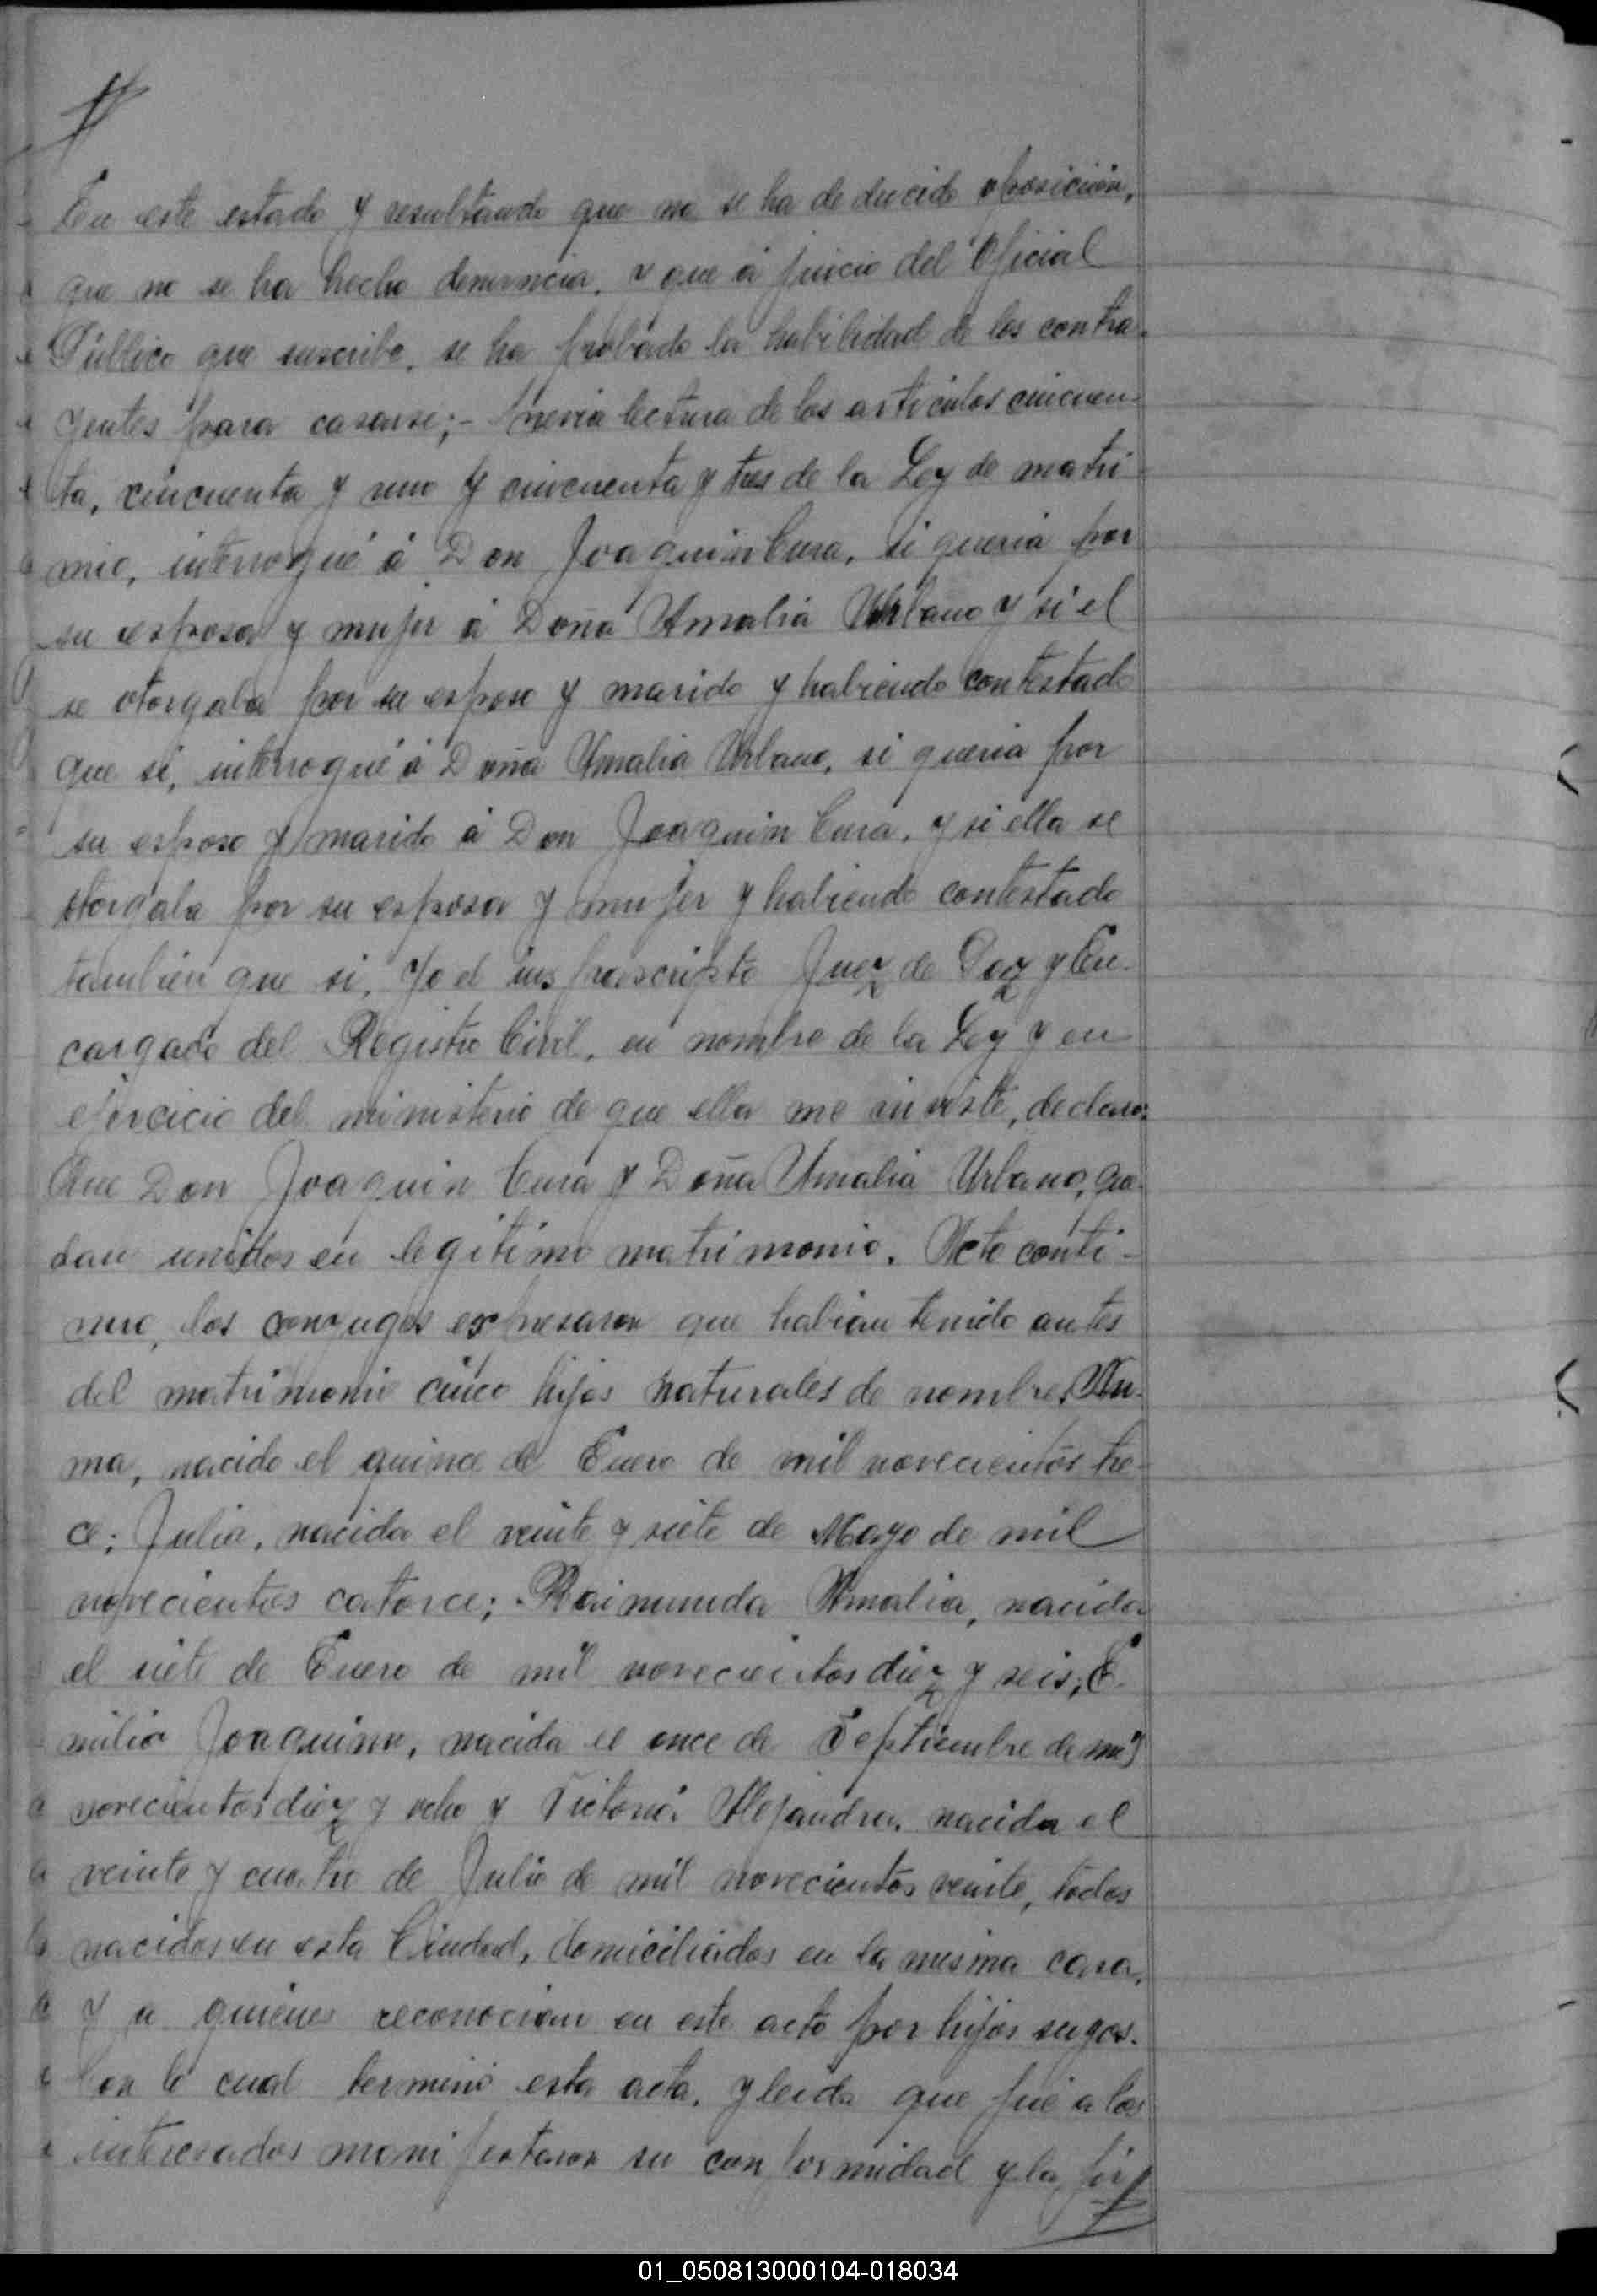 En este estado y resultando que no se ha deducido oposición,
que no se ha hecho denuncia, y que á juicio del Oficial
Público que suscribe, se ha probado la habilidad de los contra-
yentes para casarse;- previa lectura de los artículos cincuen-
ta, cincuenta y uno y cincuenta y tres de la Ley de matri-
monio, interrogué á Don Joaquin Cura, si queria por
su esposa y mujer á Doña Amalia Urbano y si el
se otorgaba por su esposo y marido y habiendo contestado
que si, interrogué á Doña Amalia Urbano, si queria por
su esposo y marido á Don Joaquin Cura, y si ella se
otorgaba por su esposa y mujer y habiendo contestado
tambien que si, Yo el infrascripto Juez de Paz y En-
cargado del Registro Civil, en nombre de la Ley y en
ejercicio del ministerio de que ella me inviste, declaro:
Que Don Joaquin Cura y Doña Amalia Urbano, que-
dan unidos en legitimo matrimonio. Acto conti-
nuo, los conyuges expresaron que habian tenido antes
del matrimonio cinco hijos naturales de nombres
nacido el quince de Enero de mil novecientos tre-
ce; Julia, nacida el veinte y siete de Mayo de mil
novecientos catorce; Raimunda Amalia, nacida
el siete de Enero de mil novecientos diez y seis; E-
milia Joaquina, nacida el once de Septiembre de mil
novecientos diez y ocho y Victoria Alejandra, nacida el
veinte y cuatro de Julio de mil novecientos veinte, todos
nacidos en esta Ciudad, domiciliados en la misma casa,
y a quienes reconocian en este acto por hijos suyos.
Con lo cual terminó esta acta, y leida que fué a los
interesados manifestaron su conformidad y la fir
01_050813000104-018034